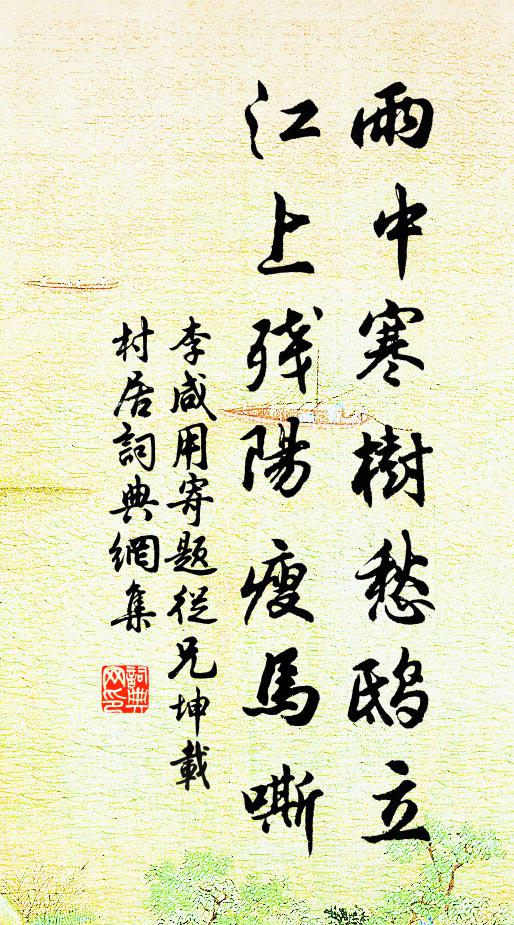 雨中寒樹愁鴟立
江上殘陽瘦馬嘶
李咸用寄題從兄坤載
村居詞典網集
詞典
网印